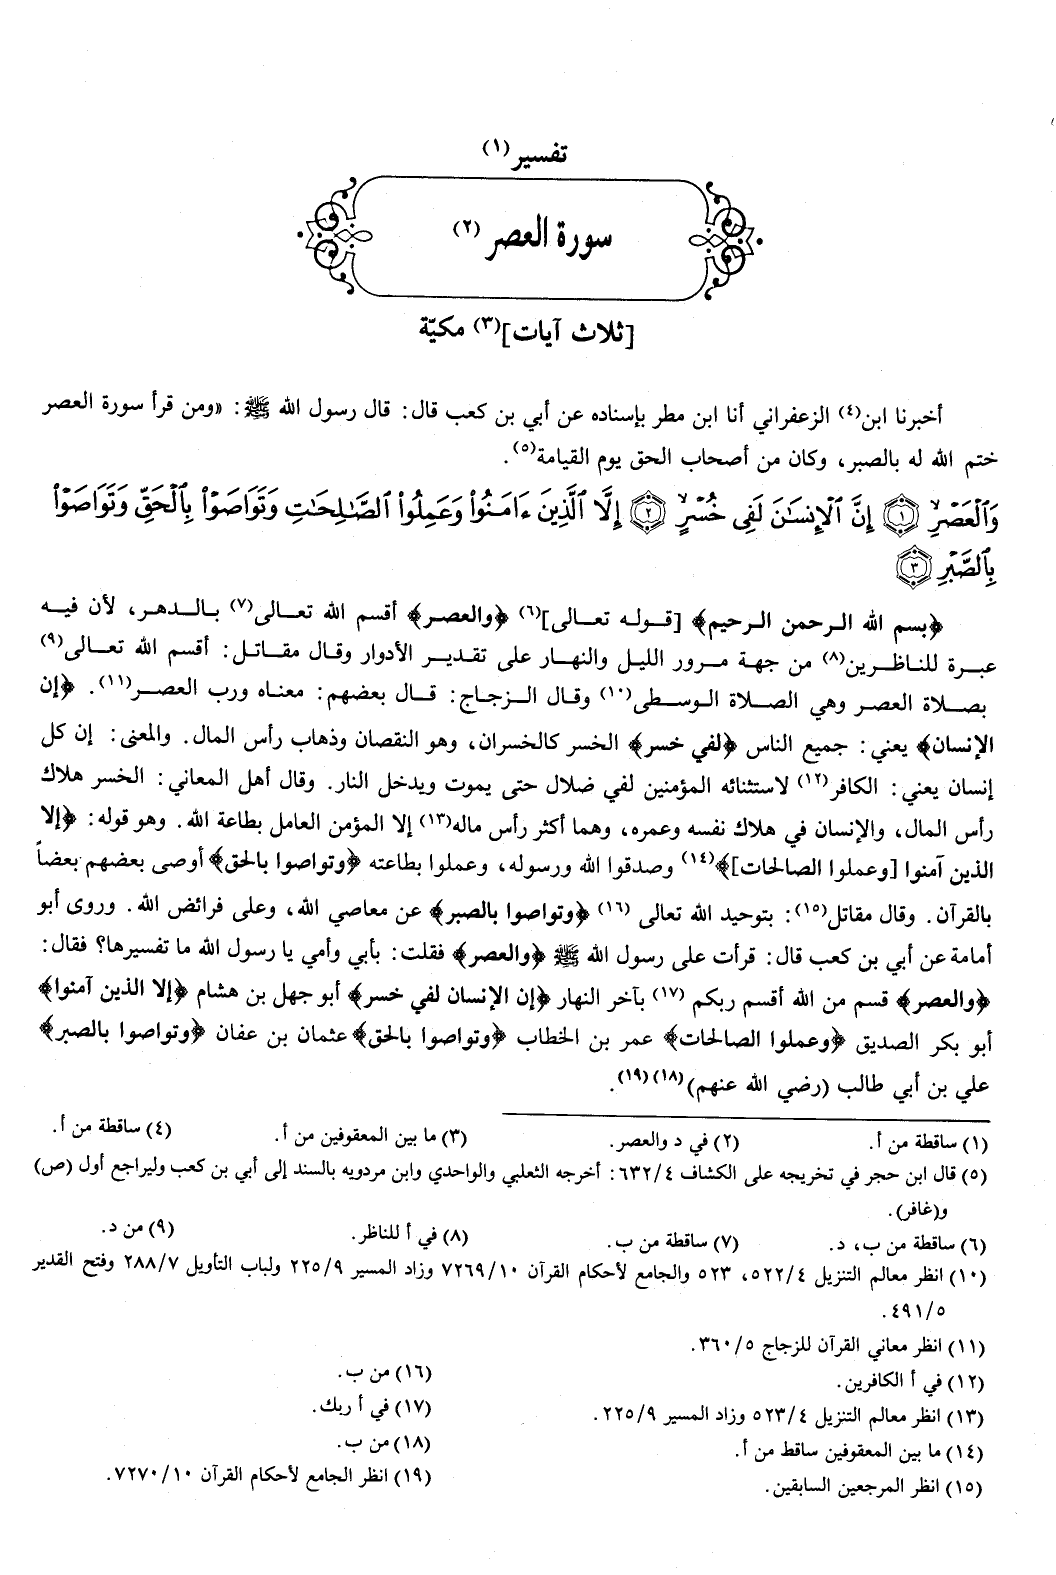 تفسير(١)
سورة العصر (٢)
[ثلاث آيات](٣) مكيّة
أخبرنا ابن(٤) الزعفراني أنا ابن مطر بإسناده عن أبي بن كعب قال: قال رسول الله ﷺ: «ومن قرأ سورة العصر
ختم الله له بالصبر، وكان من أصحاب الحق يوم القيامة(٥).
وَٱلْعَصْرِ ١ إِنَّ ٱلْإِنسَٰنَ لَفِى خُسْرٍ ٢ إِلَّا ٱلَّذِينَ ءَامَنُوا۟ وَعَمِلُوا۟ ٱلصَّٰلِحَٰتِ وَتَوَاصَوْا۟ بِٱلْحَقِّ وَتَوَاصَوْا۟
بِٱلصَّبْرِ ٣
﴿بسم الله الرحمن الرحيم﴾ [قوله تعالى](٦) ﴿والعصر﴾ أقسم الله تعالى(٧) بالدهر، لأن فيه
عبرة للناظرين(٨) من جهة مرور الليل والنهار على تقدير الأدوار وقال مقاتل: أقسم الله تعالى(٩)
بصلاة العصر وهي الصلاة الوسطى(١٠) وقال الزجاج: قال بعضهم: معناه ورب العصر(١١). ﴿إن
الإنسان﴾ يعني: جميع الناس ﴿لفي خسر﴾ الخسر كالخسران، وهو النقصان وذهاب رأس المال. والمعنى: إن كل
إنسان يعني: الكافر(١٢) لاستثنائه المؤمنين لفي ضلال حتى يموت ويدخل النار. وقال أهل المعاني: الخسر هلاك
رأس المال، والإنسان في هلاك نفسه وعمره، وهما أكثر رأس ماله(١٣) إلا المؤمن العامل بطاعة الله. وهو قوله: ﴿إلا
الذين آمنوا [وعملوا الصالحات]﴾(١٤) وصدقوا الله ورسوله، وعملوا بطاعته ﴿وتواصوا بالحق﴾ أوصى بعضهم بعضاً
بالقرآن. وقال مقاتل(١٥): بتوحيد الله تعالى (١٦) ﴿وتواصوا بالصبر﴾ عن معاصي الله، وعلى فرائض الله. وروى أبو
أمامة عن أبي بن كعب قال: قرأت على رسول الله ﷺ ﴿والعصر﴾ فقلت: بأبي وأمي يا رسول الله ما تفسيرها؟ فقال:
﴿والعصر﴾ قسم من الله أقسم ربكم (١٧) بآخر النهار ﴿إن الإنسان لفي خسر﴾ أبو جهل بن هشام ﴿إلا الذين آمنوا﴾
أبو بكر الصديق ﴿وعملوا الصالحات﴾ عمر بن الخطاب ﴿وتواصوا بالحق﴾ عثمان بن عفان ﴿وتواصوا بالصبر﴾
علي بن أبي طالب (رضي الله عنهم)(١٨)(١٩).
(١) ساقطة من أ. (٢) في د والعصر. (٣) ما بين المعقوفين من أ. (٤) ساقطة من أ.
(٥) قال ابن حجر في تخريجه على الكشاف ٦٣٢/٤: أخرجه الثعلبي والواحدي وابن مردويه بالسند إلى أبي بن كعب وليراجع أول (ص)
و(غافر).
(٦) ساقطة من ب، د. (٧) ساقطة من ب. (٨) في أ للناظر. (٩) من د.
(١٠) انظر معالم التنزيل ٥٢٢/٤، ٥٢٣ والجامع لأحكام القرآن ٧٢٦٩/١٠ وزاد المسير ٢٢٥/٩ ولباب التأويل ٢٨٨/٧ وفتح القدير
٤٩١/٥.
(١١) انظر معاني القرآن للزجاج ٣٦٠/٥.
(١٢) في أ الكافرين.
(١٣) انظر معالم التنزيل ٥٢٣/٤ وزاد المسير ٢٢٥/٩.
(١٤) ما بين المعقوفين ساقط من أ.
(١٥) انظر المرجعين السابقين.
(١٦) من ب.
(١٧) في أ ربك.
(١٨) من ب.
(١٩) انظر الجامع لأحكام القرآن ٧٢٧٠/١٠.